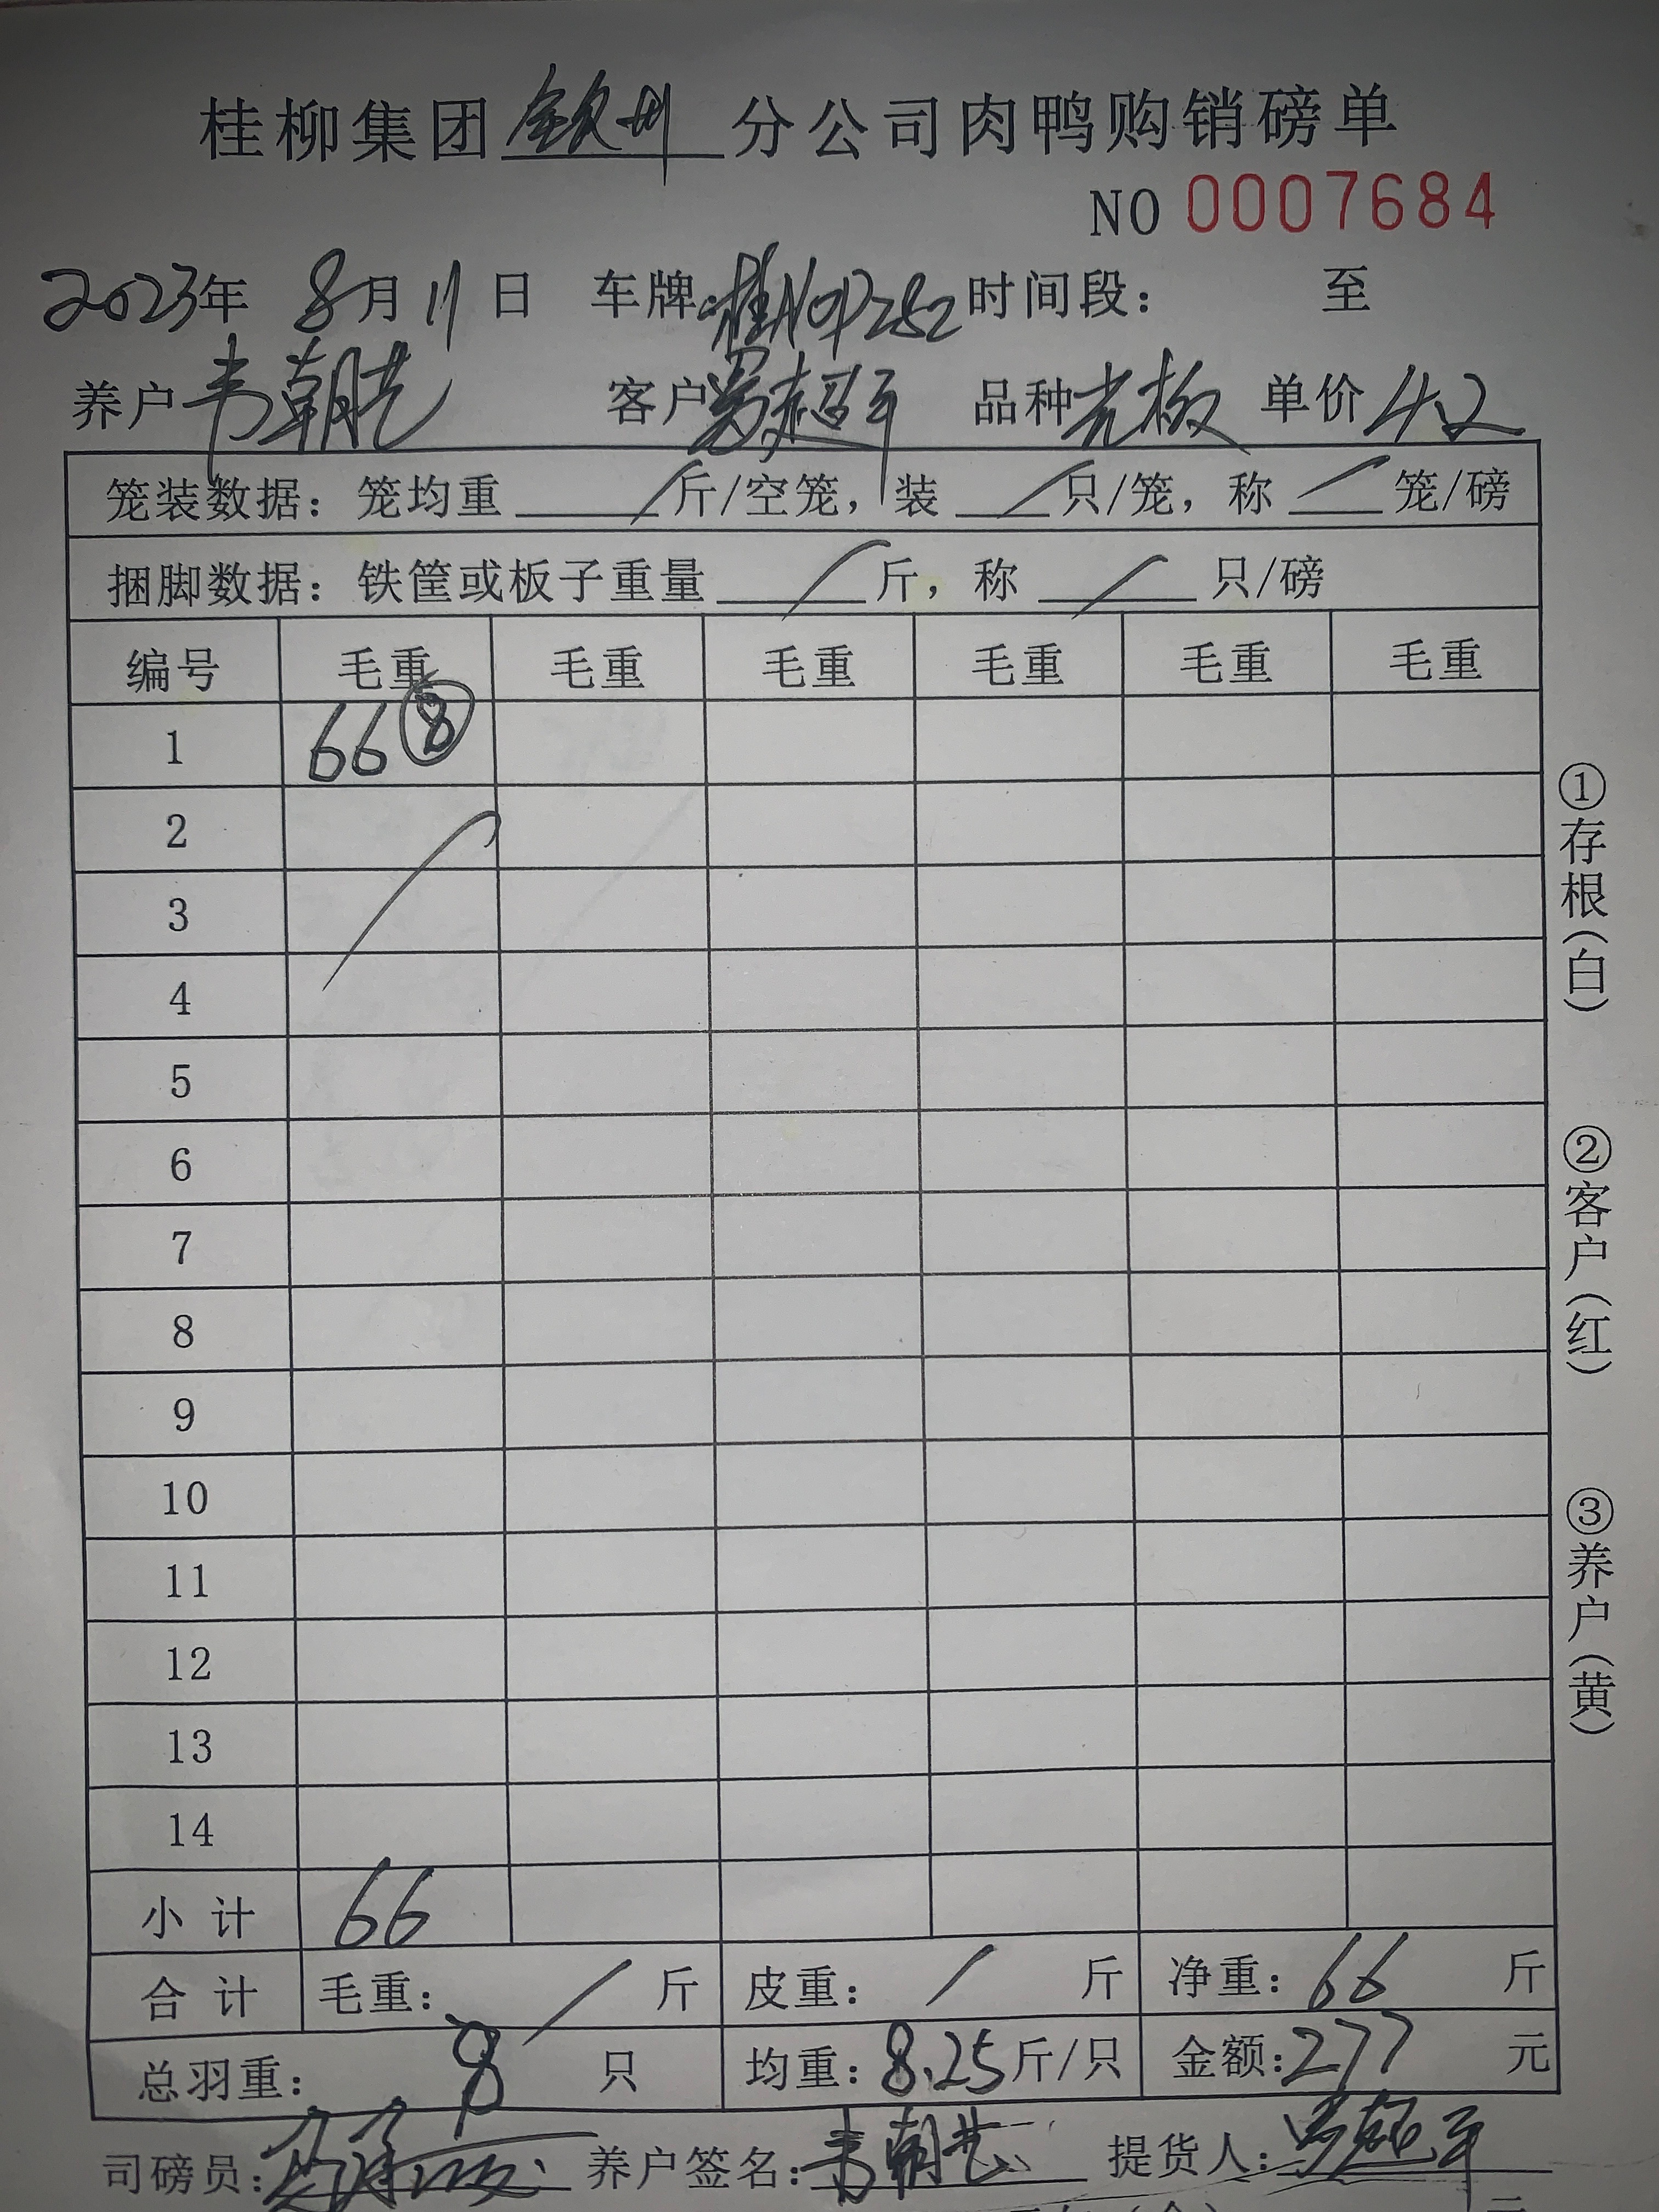 桂柳集团钦州分公司肉鸭购销磅单
NO 0007684
2023年 8月11日 车牌: 时间段: 至
养户 韦朝艺 客户 品种 光板 单价 4.2
笼装数据: 笼均重 / 斤/空笼, 装 / 只/笼, 称 / 笼/磅
捆脚数据: 铁筐或板子重量 / 斤, 称 / 只/磅
编号 毛重 毛重 毛重 毛重 毛重 毛重
1 66 ⑧
2
3
4
5
6
7
8
9
10
11
12
13
14
小计 66
合计 毛重: / 斤 皮重: / 斤 净重: 66 斤
总羽重: 8 只 均重: 8.25斤/只 金额: 277 元
司磅员: 养户签名: 韦朝艺 提货人:
①存根(白)
②客户(红)
③养户(黄)